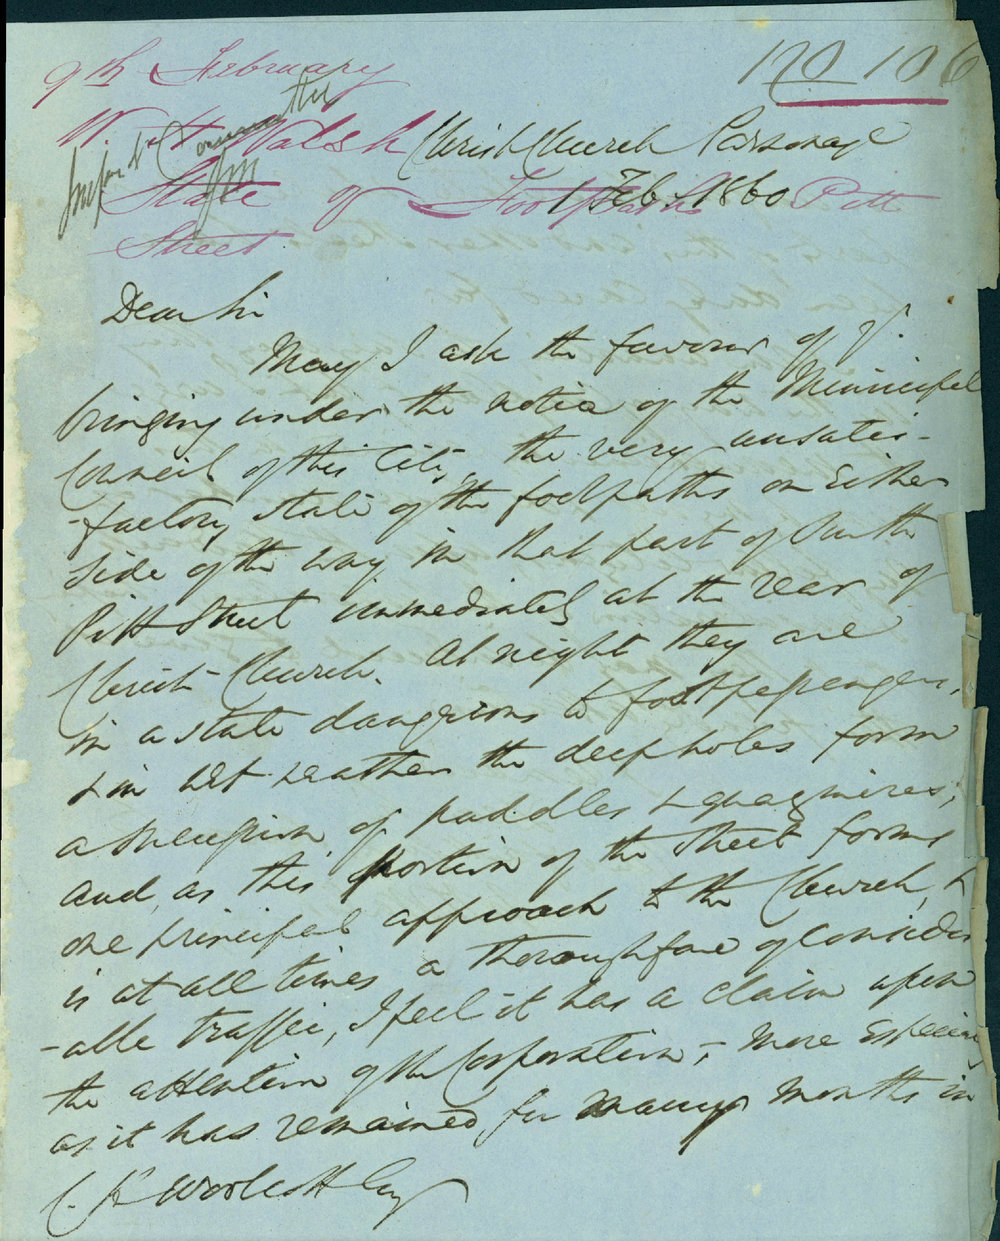 9th February
No 106
W. H. Walsh
State of Footpaths Pitt
Street
Christ Church Parsonage
1 Feb. 1860
Dear Sir
May I ask the favour of Y.
bringing under the notice of the Municipal
Council of this City, the very unsatis-
-factory state of the footpaths on Either
side of the way in that part of South
Pitt Street immediately at the rear of
Christ Church. At night they are
in a state dangerous to foot passengers,
& in wet weather the deep holes form
a succession of puddles & quagmires;
and, as this portion of the Street forms
one principal approach to the Church, &
is at all times a thoroughfare of consider
-able traffic, I feel it has a claim upon
the attention of the Corporation,- more Especially
as it has remained for many months in
C. H. Woolcott Esq